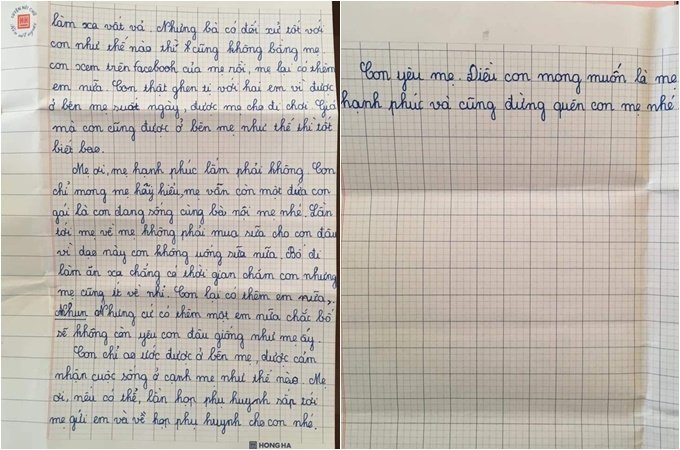 làm xa vất vả. Nhưng bà có đối xử tốt với
con như thế nào thì cũng không bằng mẹ.
con xem trên facebook của mẹ rồi, mẹ lại có thêm
em nữa. Con thật ghen tị với hai em vì được
ở bên mẹ suốt ngày, được mẹ cho đi chơi. Giá
mà con cũng được ở bên mẹ như thế thì tốt
biết bao.
Mẹ ơi, mẹ hạnh phúc lắm phải không. Con
chỉ mong mẹ hãy hiểu, mẹ vẫn còn một đứa con
gái là con đang sống cùng bà nội mẹ nhé. Lần
tới mẹ về mẹ không phải mua sữa cho con đâu
vì dạo này con không uống sữa nữa. Bố đi
làm ăn xa chẳng có thời gian chăm con nhưng
mẹ cũng ít về nhỉ. Con lại có thêm em nữa,.
Nhưn Nhưng cứ có thêm một em nữa chắc bố
sẽ không còn yêu con đâu giống như mẹ ấy.
Con chỉ ao ước được ở bên mẹ, được cảm
nhận cuộc sống ở cạnh mẹ như thế nào. Mẹ
ơi, nếu có thể, lần họp phụ huynh sắp tới
mẹ gửi em và về họp phụ huynh cho con nhé.
HONG HA
Con yêu mẹ. Điều con mong muốn là mẹ
hạnh phúc và cũng đừng quên con mẹ nhé